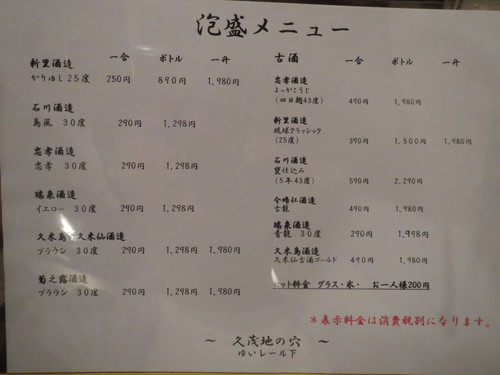 泡盛メニュー
一合 ボトル 一升
新里酒造
かりゆし25度 250円 890円 1,980円
石川酒造
島風 30度 290円 1,298円
忠孝酒造
忠孝 30度 290円 1,298円
瑞泉酒造
イエロー 30度 290円 1,298円
久米島 久米仙酒造
ブラウン 30度 290円 1,298円 1,980円
菊之露酒造
ブラウン 30度 290円 1,298円 1,980円
古酒 一合 ボトル 一升
忠孝酒造
よっかこうじ
(四日麹43度) 490円 1,980円
新里酒造
琉球クラシック
(25度) 390円 1,500円 1,980円
石川酒造
甕仕込み
(5年43度) 590円 2,290円
今帰仁酒造
古龍 490円 1,980円
瑞泉酒造
青龍 30度 290円 1,998円
久米島酒造
久米仙古酒ゴールド 490円 1,980円
セット料金 グラス・氷・ お一人様200円
*表示料金は消費税別になります。
~ 久茂地の穴 ~
ゆいレール下